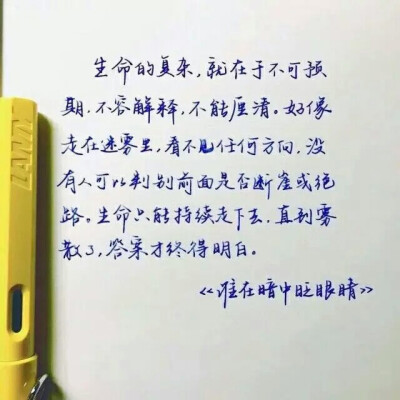 生命的复杂，就在于不可预
期，不容解释，不能厘清。好像
走在迷雾里，看不见任何方向，没
有人可以判别前面是否断崖或绝
路。生命只能持续走下去，直到雾
散了，答案才终得明白。
《谁在暗中眨眼睛》
LAMY